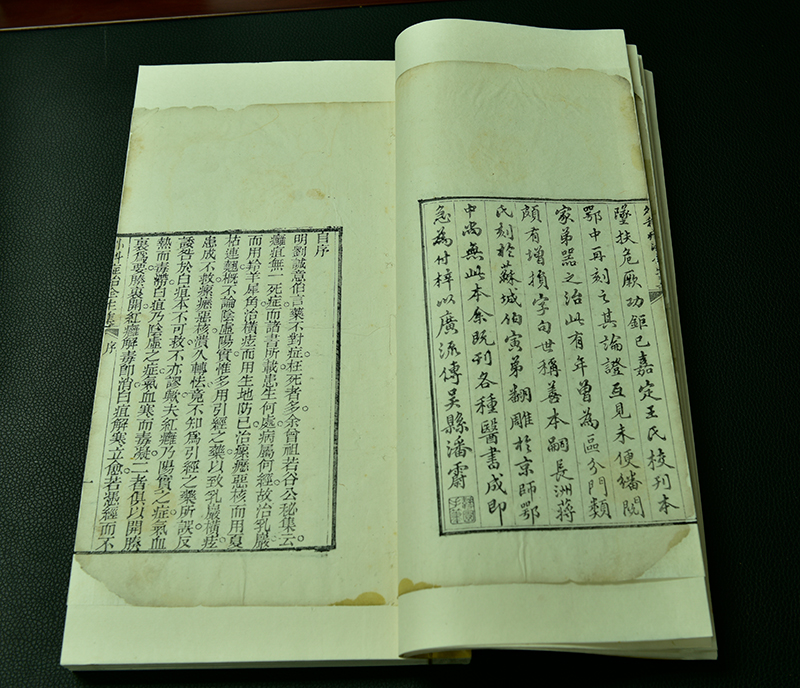 墜扶危厥功鉅巳嘉定王氏校刊本
鄂中再刻之其論證互見未便繙閱
家弟器之治此有年曾為區分門類
頗有增損字句世稱善本嗣長洲蔣
氏刻於蘇城伯寅弟翻雕於京師鄂
中尚無此本余既刊各種醫書成即
急為付梓以廣流傳吳縣潘霨
自序
明劉誠意伯言藥不對症枉死者多。余曾祖若谷公秘集云。
癰疽無一死症。而諸書所載患生何處。病屬何經。故治乳巖
而用羚羊犀角。治橫痃而用生地防已。治瘰癧惡核而用夏
枯連翹。概不論陰虛陽實。惟多用引經之藥。以致乳巖橫痃
患成不救。瘰癧惡核潰久轉怯。竟不知爲引經之藥所誤。反
諉咎於白疽本不可救。不亦謬歟。夫紅癰乃陽實之症。氣血
熱而毒滯。白疽乃陰虛之症。氣血寒而毒凝。二者俱以開腠
裏爲要。腠裏開。紅癰解毒即消。白疽解寒立愈。若憑經而不
外科症治全生集 序
一